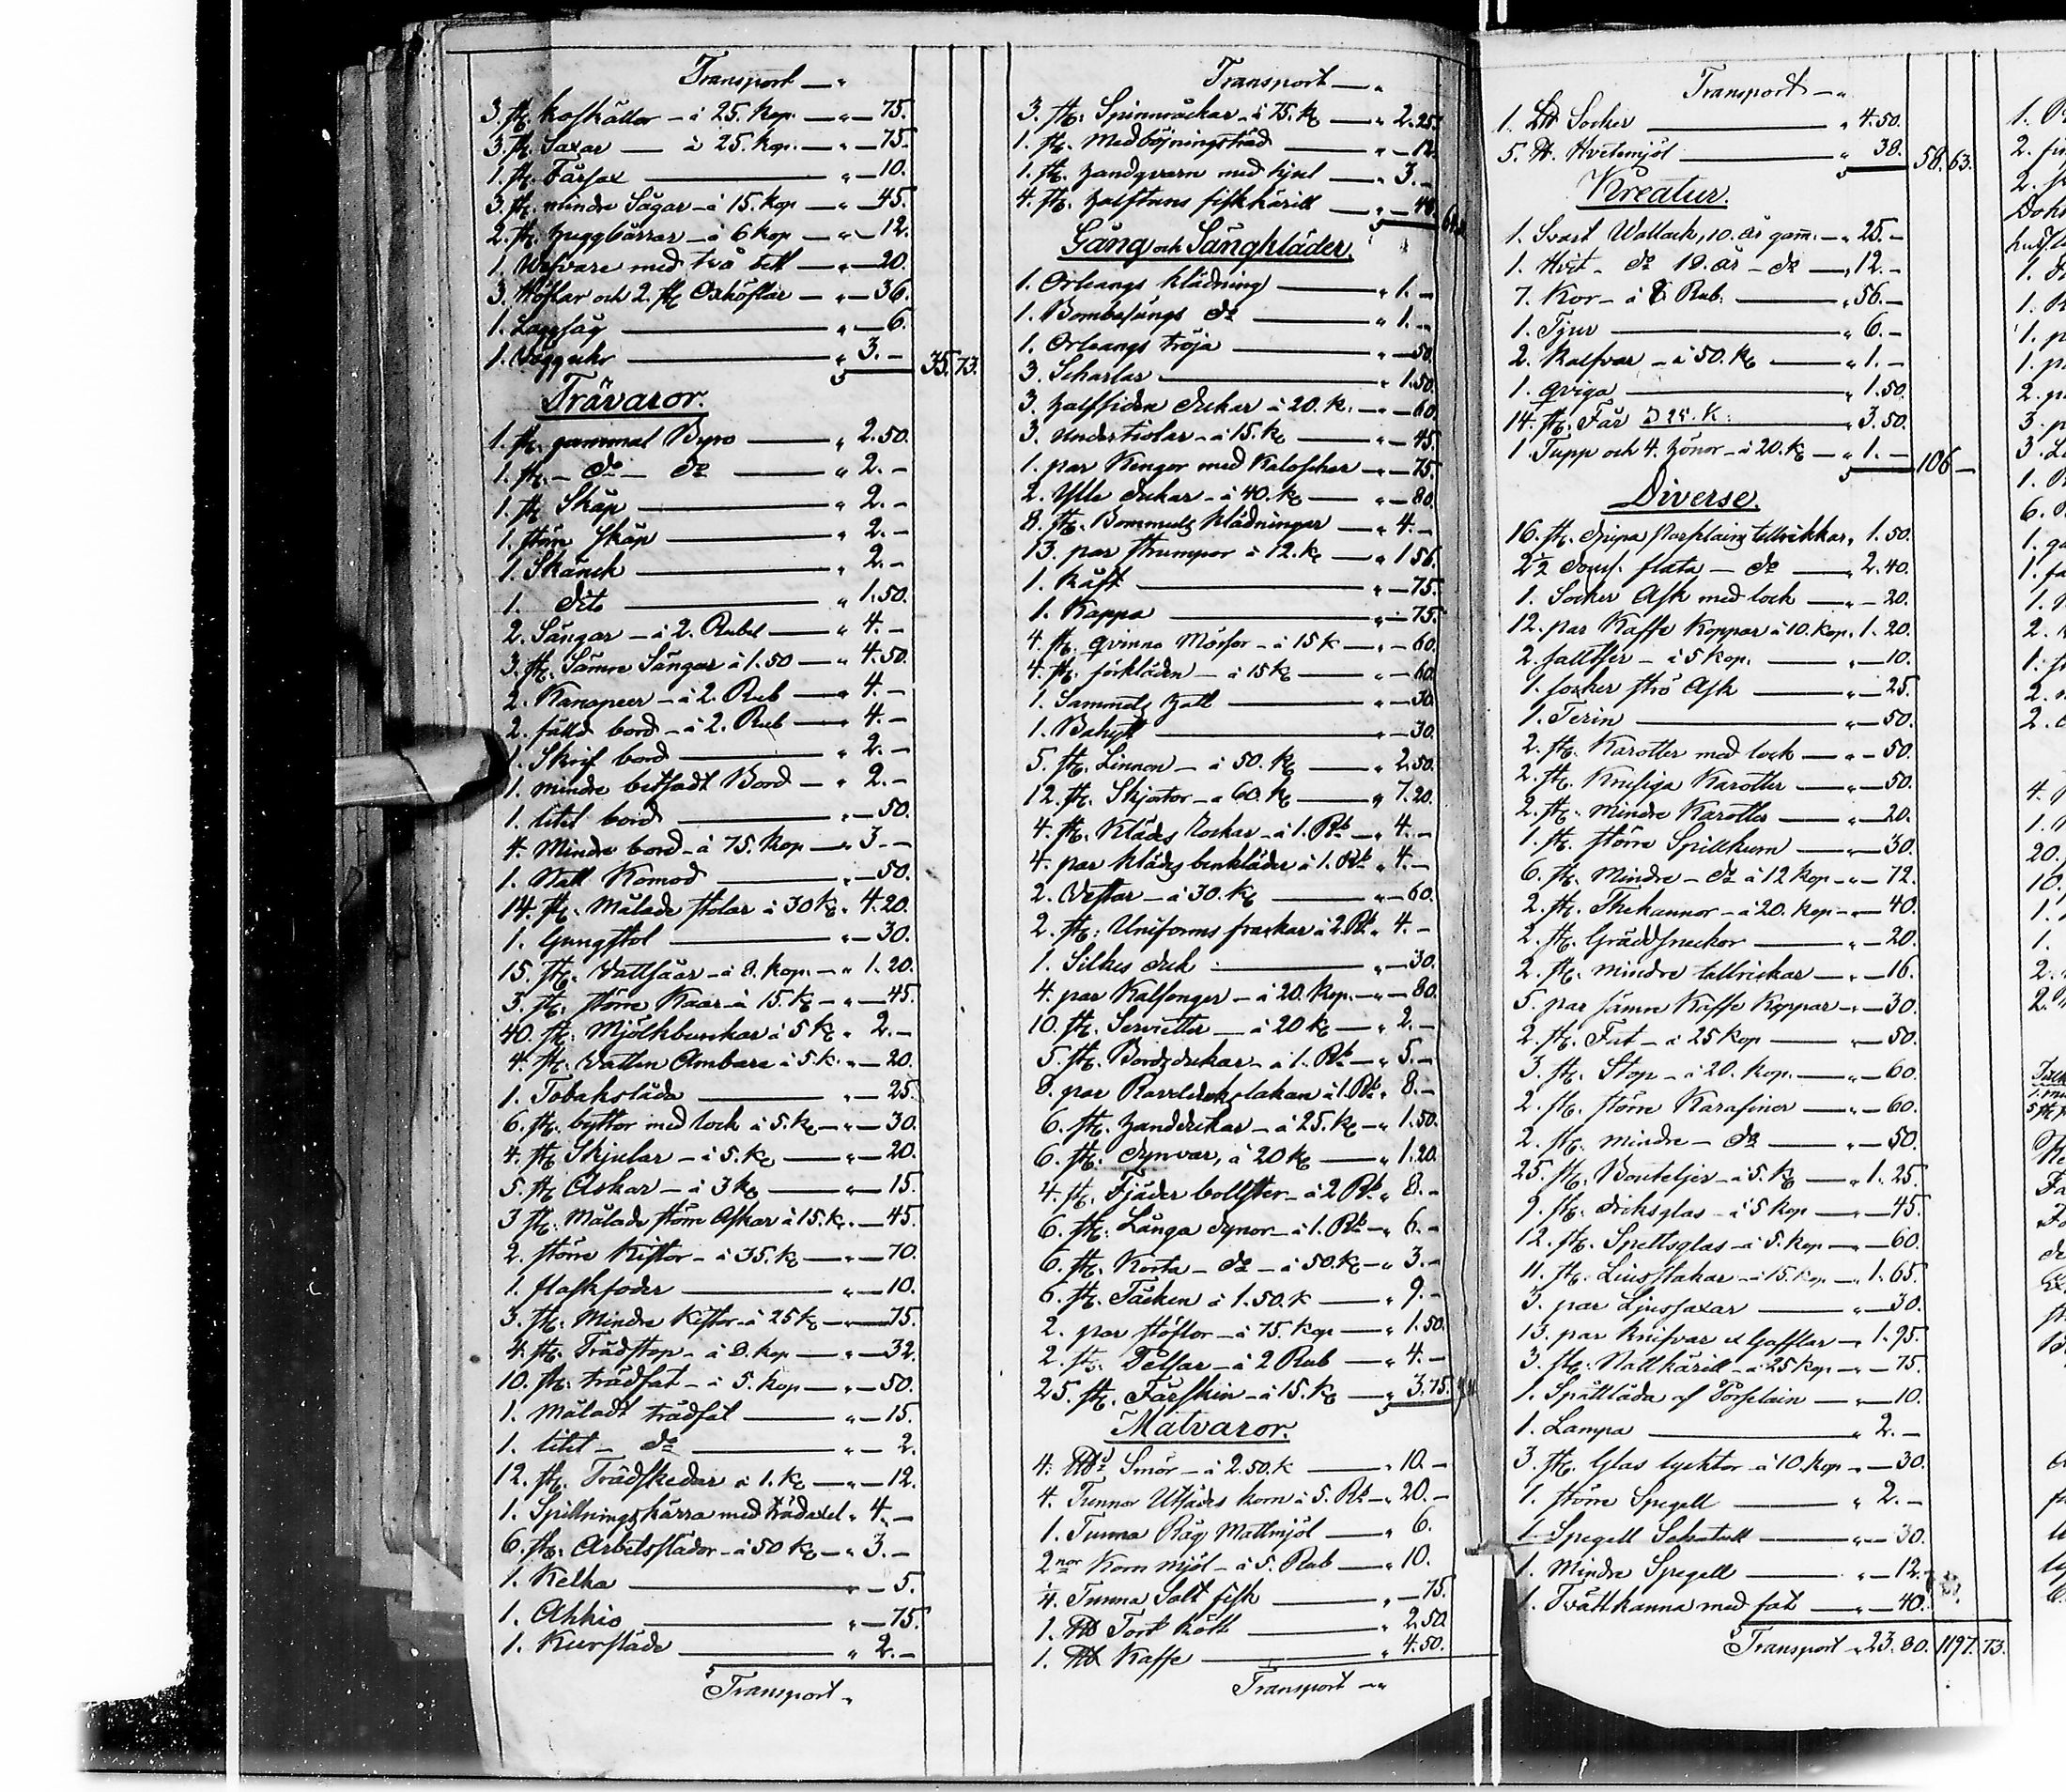 Transport — „
3. st. koskällor — à 25. kop. — „ — 75.
3. st. Saxar — à 25. kop. — „ — 75.
1. st. Fårsax — „ — 10.
3. st. mindre Sågar — à 15. kop — „ — 45.
2. st. huggbårrar — à 6 kop — „ — 12.
1. Wefvare med två bett — „ — 20.
3. Höflar och 2. st. Oxhöflar — „ — 36.
1. Laggsåg — „ — 6.
1. Vägguhr — „ 3. — 35. 73.
Trävaror.
1. st. gammal Byro — „ 2.50.
1. st. — do — do — „ 2. —
1. st. Skåp — „ 2. —
1. större skåp — „ 2. —
1. Skänck — „ 2. —
1. dito — „ 1.50.
2. Sängar — à 2. Rubel — „ 4. —
3. st. Sämre Sängar à 1.50 — „ 4.50.
2. Kanapeer — à 2. Rub — „ 4. —
2. fälld bord — à 2. Rub — „ 4. —
1. Skrif bord — „ 2. —
1. mindre betsadt Bord — „ 2. —
1. litet bord — „ — 50.
4. Mindre bord — à 75. kop — „ 3 —
1. Natt Komod — „ — 50.
14. st. Målade stolar à 30 k. „ 4.20.
1. Gungstol — „ — 30.
15. st. Vattsåar — à 8. kop. — „ 1.20.
3. st. större Kaar — à 15. k. — „ — 45.
40. st. Mjölkbunckar à 5 k. „ 2. —
4. st. Vatten Ämbare à 5. k. „ — 20.
1. Tobakslåda — „ — 25.
6. st. byttor med lock à 5. k. — „ — 30.
4. st. Skjular — à 5. k. — „ — 20.
5. st. Askar — à 3 k. — „ — 15.
3 st. Målade större Askar à 15. k. „ — 45.
2. större Kistor — à 35. k. — „ — 70.
1. flaskfoder — „ — 10.
3. st. Mindre Kistor — à 25 k. — „ — 75.
4. st. Trädstop — à 8. kop — „ — 32.
10. st. trädfat — à 5. kop — „ — 50.
1. Måladt trädfat — „ — 15.
1. litet — do — „ — 2.
12. st. Trädskedar à 1. k. — „ — 12.
1. Spillningskärra med trädaxel „ 4. —
6. st. Arbetsslädor — à 50 k. — „ 3. —
1. Kelka — „ — 5.
1. Ahkio — „ — 75.
1. Kursläde — „ 2. —
Transport „
Transport — „
3. st. Spinnråckar — à 75. k — „ 2.25.
1. st. Medböjningsträd — „ — 12.
1. st. handqvarn med hjul — „ 3. —
4. st. halftuns fiskkärill — „ — 40.
Gång och Sängkläder.
1. Orleangs klädning — „ 1. —
1. Bombasings do — „ 1. —
1. Orleangs tröja — „ — 50.
3. Scharlar — „ 1.50.
3. halfsiden dukar à 20. k. — „ — 60.
3. underkiolar — à 15. k. — „ — 45.
1. par Kengor med Kaloscher — „ — 75.
2. Ylle dukar — à 40. k. — „ — 80.
8. st. Bommulls klädningar — „ 4. —
13. par strumpor à 12. k. — „ 1 56.
1. Käft — „ — 75.
1. Kappa — „ — 75.
4. st. qvinno Mössor — à 15 k — „ — 60.
4. st. förkläden — à 15 k. — „ — 60.
1. Sammets hatt — „ — 30.
1. Bahytt — „ — 30.
5. st. Linnen — à 50. k. — „ 2.50.
12. st. Skjortor — à 60. k. — „ 7.20.
4. st. Klädes rockar — à 1. Rb. — „ 4. —
4. par klädes benkläder à 1. Rb. „ 4. —
2. Västar — à 30. k. — „ — 60.
2. st. Uniforms frackar à 2 Rb. „ 4. —
1. Silkes duk — „ — 30.
4. par Kalsonger — à 20. kop. — „ — 80.
10. st. Servietter — à 20 k. — „ 2. —
5. st. Bordsdukar — à 1. Rb. — „ 5. —
8. par Ravelduks lakan à 1 Rb. „ 8. —
6. st. handdukar — à 25. k. — „ 1.50.
6. st. dynvar, à 20 k. — „ 1.20.
4. st. Fjäder bollster — à 2 Rb. „ 8. —
6. st. Långa dynor — à 1. Rb. — „ 6. —
6. st. Korta — do — à 50 k. — „ 3. —
6. st. Täcken à 1.50. k — „ 9. —
2. par stöflor — à 75. kop — „ 1.50.
2. st. Pelsar — à 2 Rub — „ 4. —
25. st. Fårskin — à 15. k. — „ 3.75.
Matvaror.
4. Lb Smör — à 2.50. k — „ 10. —
4. Tunnor Utsädes korn à 5. Rb. — „ 20. —
1. Tunna Råg Mattmjöl — „ 6.
2 nor Korn mjöl — à 5. Rub — „ 10.
¼. Tunna Salt fisk — „ — 75.
1. Lb Tort kött — „ 2.50.
1. Lb Kaffe — „ 4.50.
Transport — „
Transport — „
1. Lb Socker — „ 4.50.
5. lb. Hvetemjöl — „ 38. 58. 63.
Kreatur.
1. Svart Wallack, 10. år gam. — „ 25. —
1. Hvit — do 19. år — do — „ 12. —
7. Kor — à 8 Rub. — „ 56. —
1. Tjur — „ 6. —
2. Kalfvar — à 50. k. — „ 1. —
1. qviga — „ 1.50.
14. st. Får à 25. k. — „ 3.50.
1 Tupp och 4. hönor — à 20. k. — „ 1. — 106 —
Diverse.
16. st. djupa Porslains tellrikkar „ 1.50.
2½ douss. flata — do — „ 2.40.
1. Socker Ask med lock — „ — 20.
12. par Kaffe Koppar à 10. kop. „ 1.20.
2. saltser — à 5 kop. — „ — 10.
1. socker strö Ask — „ — 25.
1. Terin — „ — 50.
2. st. Karotter med lock — „ — 50.
2. st. Krusiga Karotter — „ — 50.
2. st. Mindre Karotter — „ — 20.
1. st. större Spillkum — „ — 30.
6. st. Mindre — do à 12 kop — „ — 72.
2. st. Thekannor — à 20. kop — „ — 40.
2. st. Gräddsneckor — „ — 20.
2. st. mindre tallrickar — „ — 16.
5. par sämre Kaffe Koppar — „ — 30.
2. st. Fat — à 25 kop — „ — 50.
3. st. Stop — à 20. kop. — „ — 60.
2. st. större Karafiner — „ — 60.
2. st. mindre — do — „ — 50.
25. st. Bouteljer — à 5. k. — „ 1.25.
9. st. driksglas — à 5 kop — „ — 45.
12. st. Spettsglas — à 5. kop — „ — 60.
11. st. Liusstakar — à 15. kop — „ 1.65.
3. par Ljussaxar — „ — 30.
13. par knifvar o Gafflar — „ 1.95.
3. st. Nattkärill — à 25 kop — „ — 75.
1. Spåttlåda af Porslain — „ — 10.
1. Lampa — „ 2. —
3. st. Glas lycktor — à 10. kop — „ — 30.
1. större Spegell — „ 2. —
1. Spegell Schatull — „ — 30.
1. Mindre Spegell — „ — 12.
1. Tvättkanna med fat — „ — 40.
Transport „ 23. 80. 1197. 73.